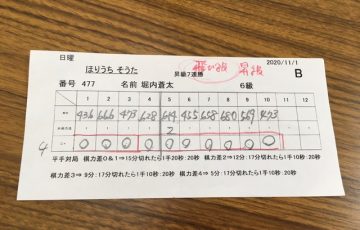 日曜
2020/11/1
ほりうち そうた
昇級7連勝
昇級
B
番号 477 名前 堀内蒼太 6級
1 2 3 4 5 6 7 8 9 10
436 666 473 628 614 455 658 680 569 473
2
4 ○ ○ ○ ○ ○ ○ ○ ○ ○ ○
平手対局 棋力差0&1⇒15分切れたら1手20秒:20秒 棋力差2⇒12分:17分切れたら1手10秒:20秒
棋力差3⇒9分:17分切れたら1手10秒:20秒 棋力差4⇒5分:17分切れたら1手10秒:20秒